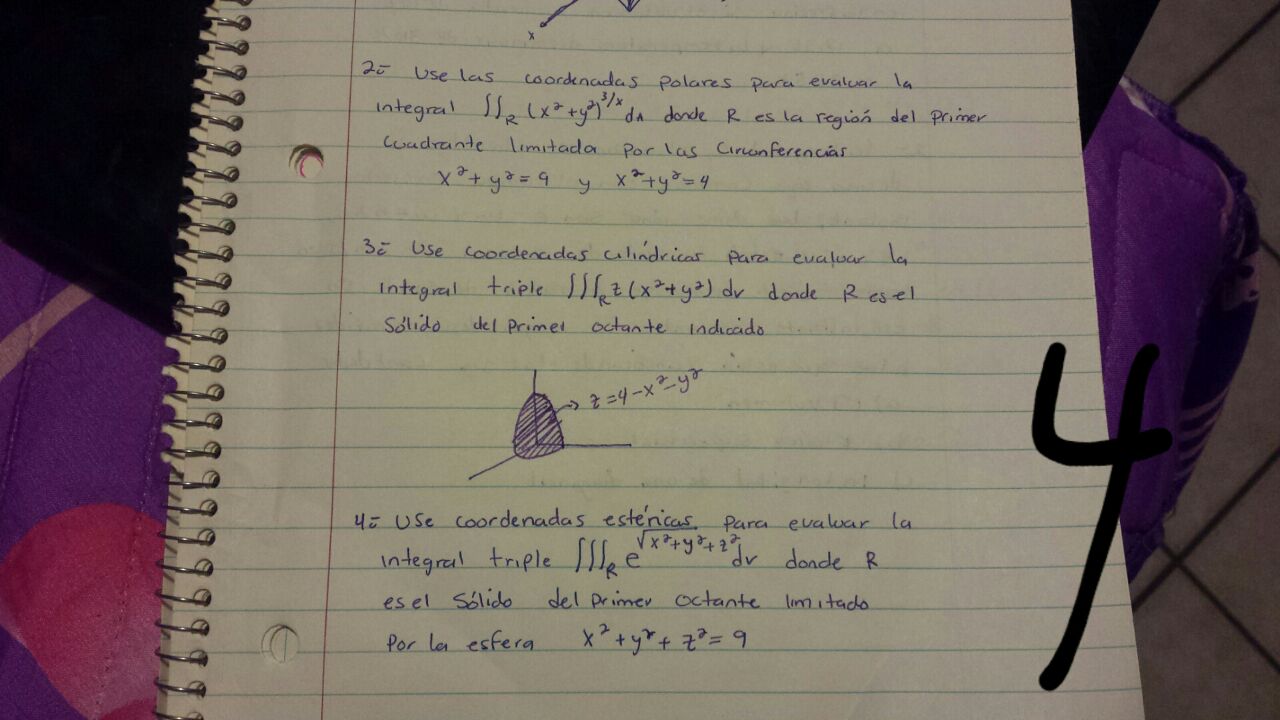 x
2.- Use las coordenadas polares para evaluar la
integral ∬_R (x²+y²)^3/x dA donde R es la región del primer
cuadrante limitada por las circunferencias
x²+y²=9 y x²+y²=4
3.- Use coordenadas cilíndricas para evaluar la
integral triple ∭_R z(x²+y²) dv donde R es el
sólido del primer octante indicado
z=4-x²-y²
4.- Use coordenadas esféricas para evaluar la
integral triple ∭_R e^√(x²+y²+z²) dv donde R
es el sólido del primer octante limitado
por la esfera x²+y²+z²=9
4